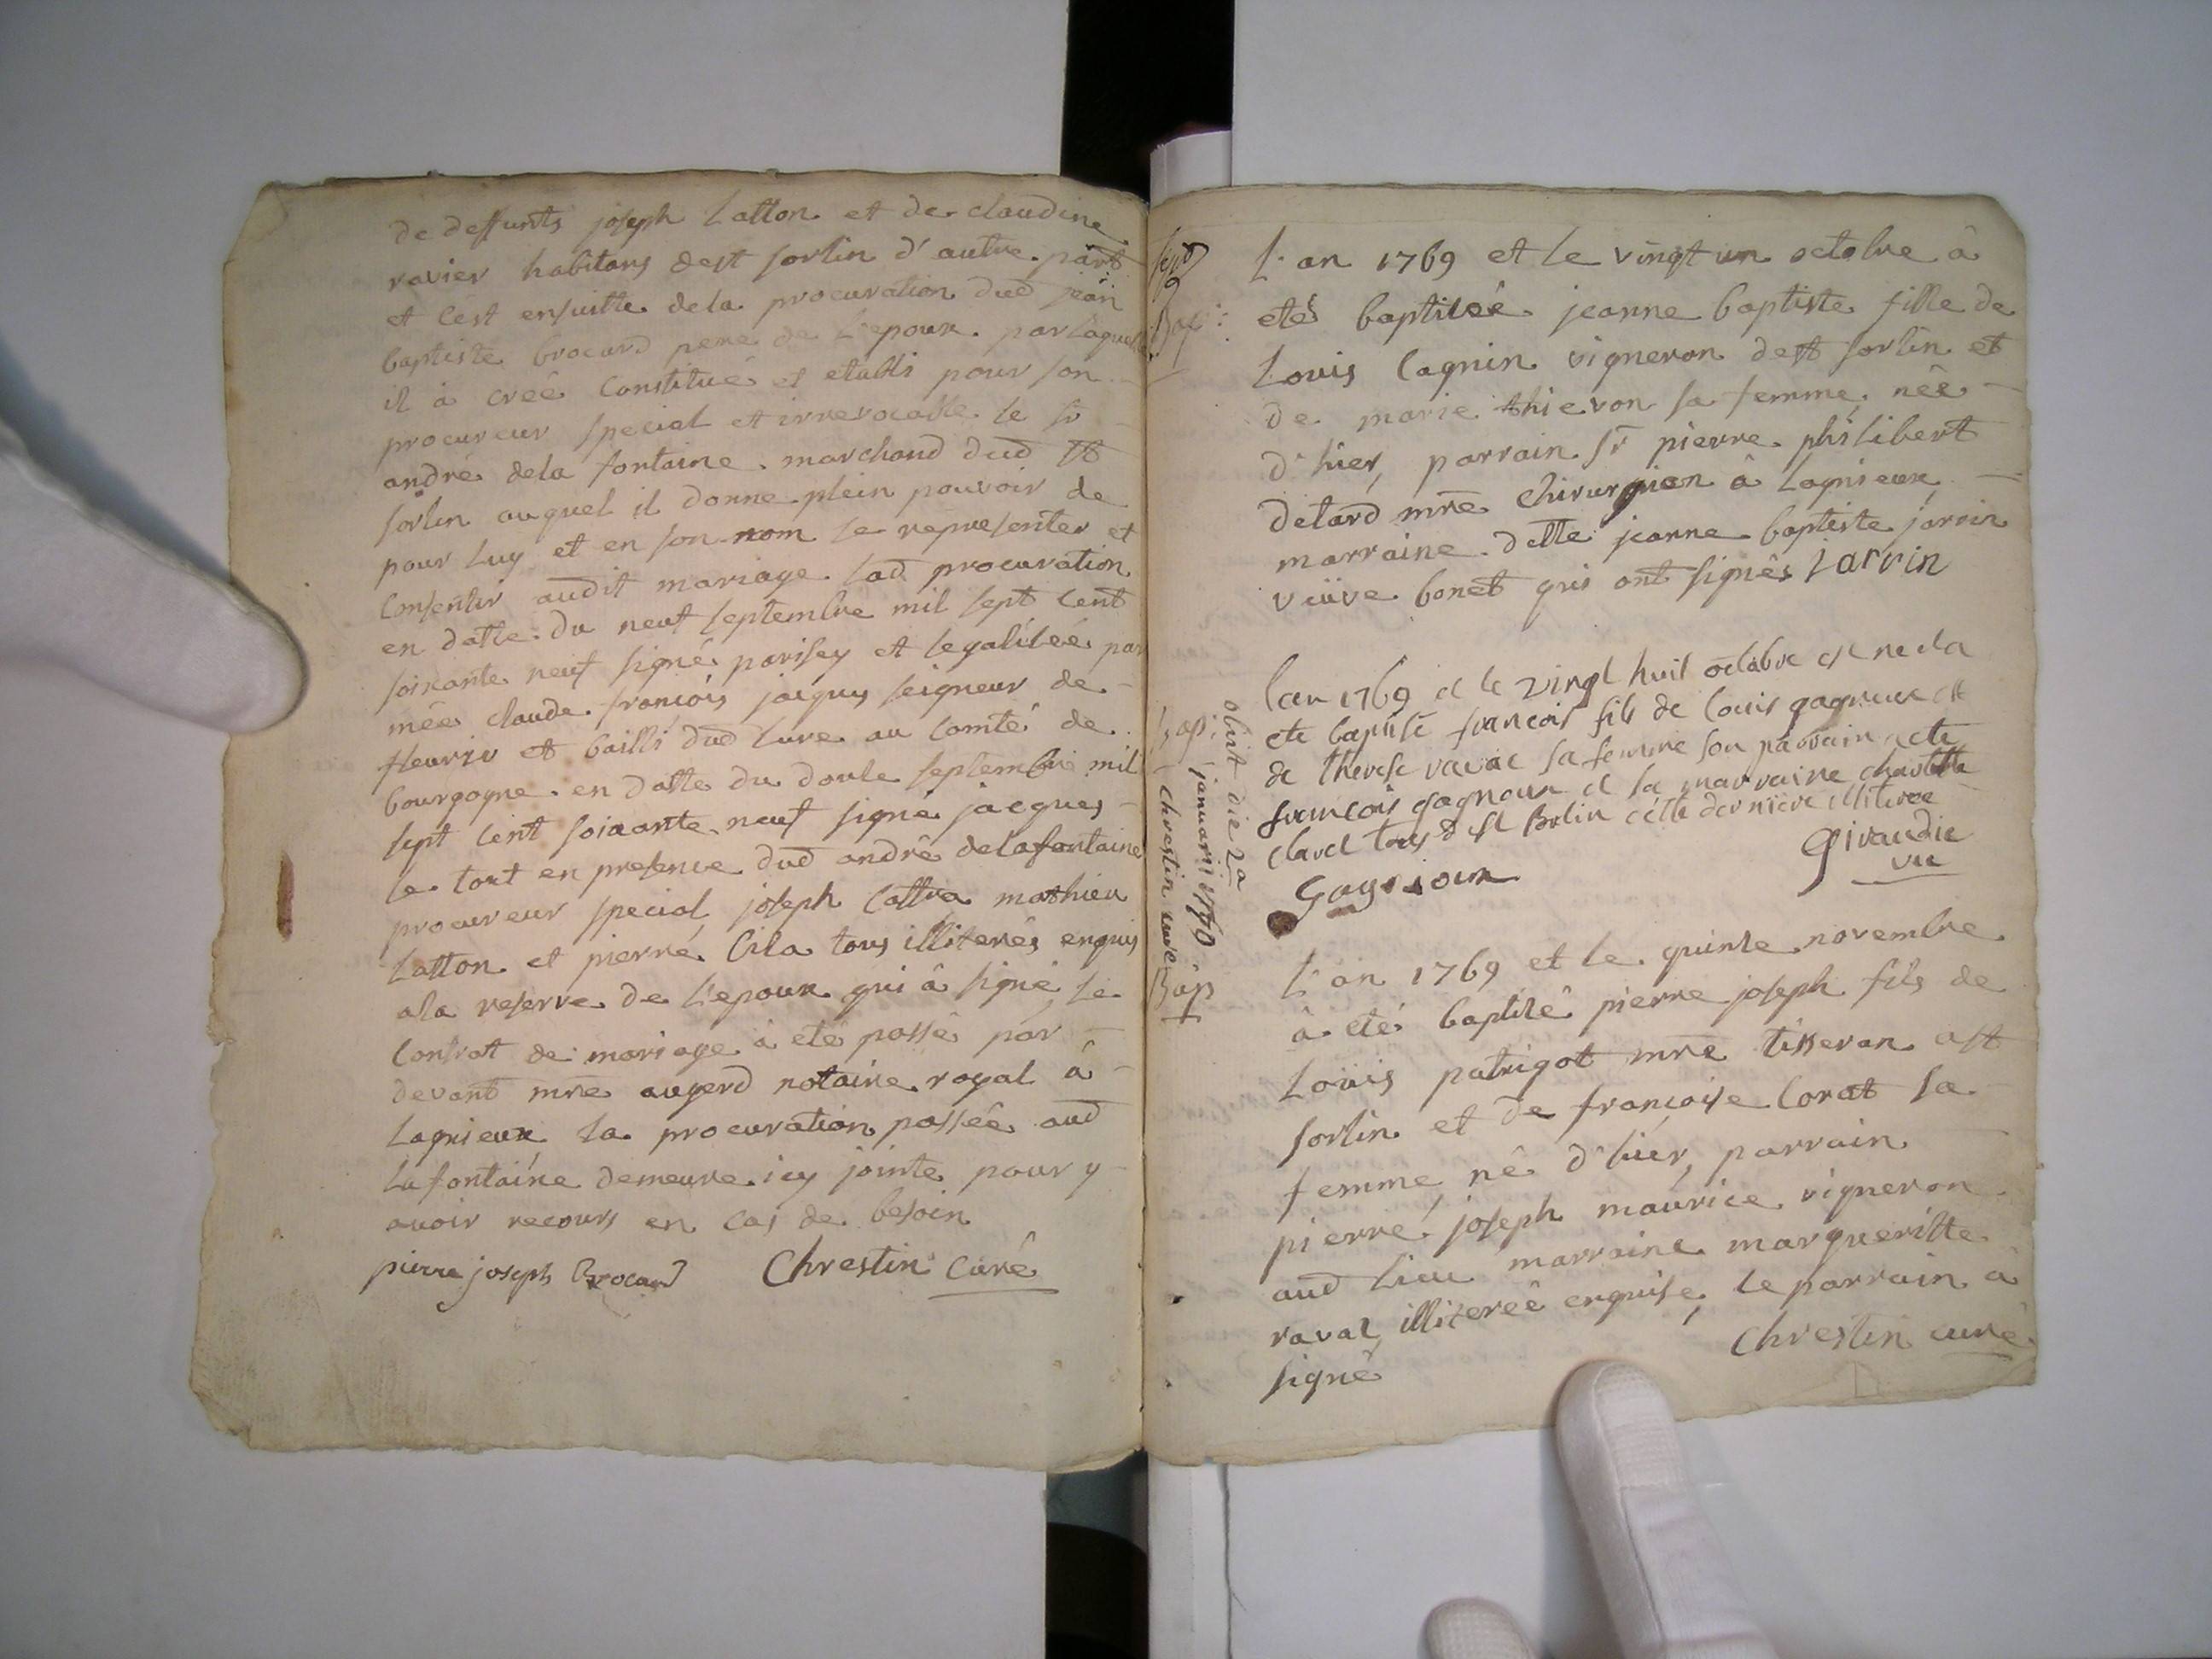 de deffunts joseph Latton et de claudine
ravier habitans dest sorlin d'autre part
et c'est ensuitte dela procuration dud jean
baptiste brocard pere de L'epoux par laquelle
il à creé Constitué et etabli pour son
procureur special et irrevocable le sr
andré dela fontaine marchand dud st
sorlin auquel il donne plein pouvoir de
pour Luy et en son nom le representer et
Consentir audit mariage lad procuration
en datte du neuf septembre mil sept cent
soixante neuf signé parisey et legalisée par
mée claude francois jacquy seigneur de
fleurir et bailli dud lure au comté de
bourgogne en datte du douse septembre mil
sept cent soixante neuf signé jacques
le tout en presence dud andré delafontaine
procureur special joseph Cattra mathieu
Latton et pierre Cila tous illiterés enquis
ala reserve de L'epoux qui à signé Le
Contrat de mariage à eté passé par
devant mre augerd notaire royal à
Lagnieux La procuration passée aud
Lafontaine demeure icy jointe pour y
avoir recours en cas de besoin
pierre joseph Brocard Chrestin Curé
L'an 1769 et le vingt un octobre à
eteé baptisée jeanne baptiste fille de
Louis Cagnin vigneron dest sorlin et
de marie thievon sa femme née
d'hier, parrain sr pierre philibert
delard mre chirurgien à Lagnieux
marraine dlle jeanne baptiste jarrin
veuve bonet qui ont signés jarrin
Bap.
obiit die 2a
januarii 1770
chrestin curé
lan 1769 et le vingt huit octobre est ne et a
ete baptisé francois fils de louis gagneux et
de therese ravat sa femme son parrain a ete
francois gagneux et la marraine charlotte
clavel tous d st Sorlin cette derniere illiteree
Gagnioux Giraudie
vic
Bap
L'an 1769 et le quinse novembre
à eté baptisé pierre joseph fils de
Loüis patrigot mre tisseran ast
sorlin et de françoise Corat sa
femme né d'hier, parrain
pierre joseph maurice vigneron
aud lieu marraine margueritte
ravat illiterée enquise, le parrain à
signé Chrestin curé